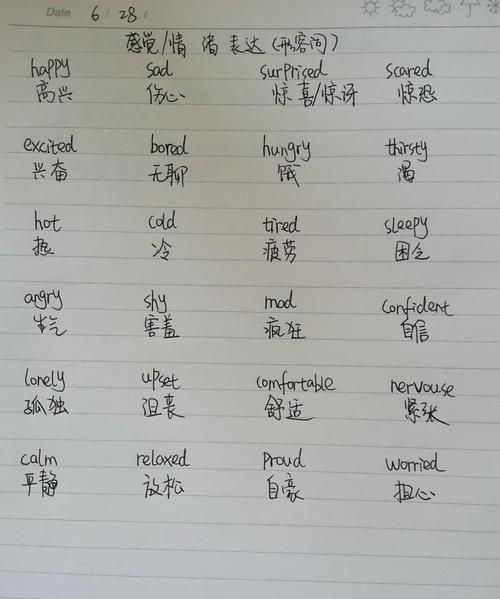 Date 6 / 28 /
感觉/情绪表达(形容词)
happy sad surprised scared
高兴 伤心 惊喜/惊讶 惊恐
excited bored hungry thirsty
兴奋 无聊 饿 渴
hot cold tired sleepy
热 冷 疲劳 困乏
angry shy mad confident
生气 害羞 疯狂 自信
lonely upset comfortable nervouse
孤独 沮丧 舒适 紧张
calm relaxed proud worried
平静 放松 自豪 担心